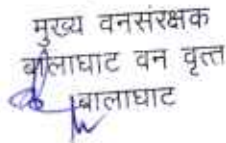 मुख्य वनसंरक्षक
बालाघाट वन वृत्त
बालाघाट